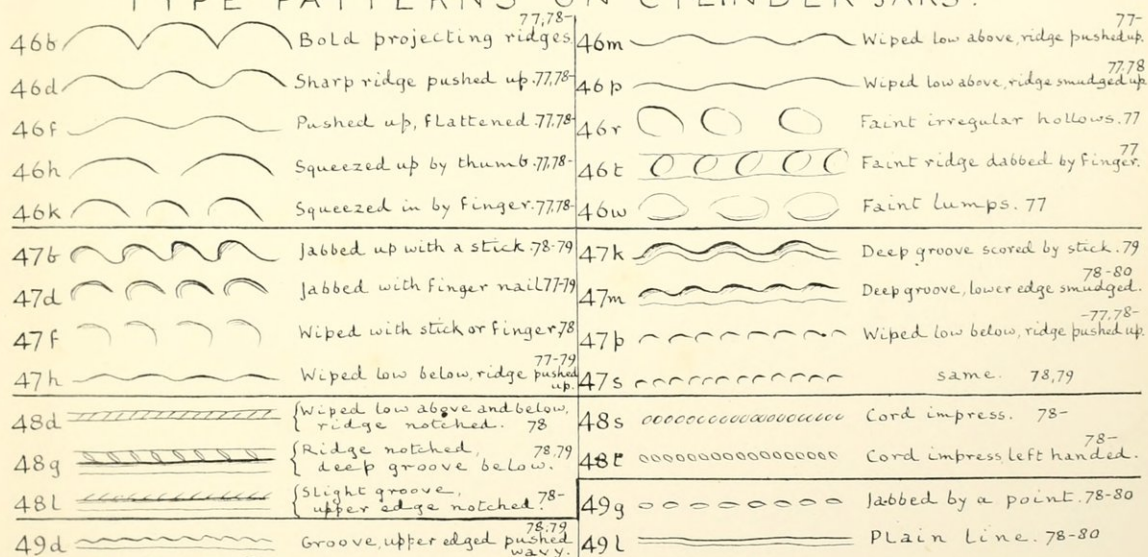 TYPE PATTERNS ON CYLINDER JARS.
77,78-
46b Bold projecting ridges.
46d Sharp ridge pushed up. 77,78-
46f Pushed up, flattened. 77,78-
46h Squeezed up by thumb. 77,78-
46k Squeezed in by finger. 77,78-
47b Jabbed up with a stick. 78-79
47d Jabbed with finger nail 77-79
47f Wiped with stick or finger, 78
77-79
47h Wiped low below, ridge pushed
up.
48d {Wiped low above and below,
ridge notched. 78
48g {Ridge notched, 78,79
deep groove below.
48l {Slight groove, 78-
upper edge notched.
78,79
49d Groove, upper edged pushed
wavy.
77-
46m Wiped low above, ridge pushed up.
77,78
46p Wiped low above, ridge smudged up.
46r Faint irregular hollows. 77
77
46t Faint ridge dabbed by finger.
46w Faint lumps. 77
47k Deep groove scored by stick. 79
78-80
47m Deep groove, lower edge smudged.
-77,78-
47p Wiped low below, ridge pushed up.
47s same. 78,79
48s Cord impress. 78-
78-
48t Cord impress, left handed.
49g Jabbed by a point. 78-80
49l Plain line. 78-80